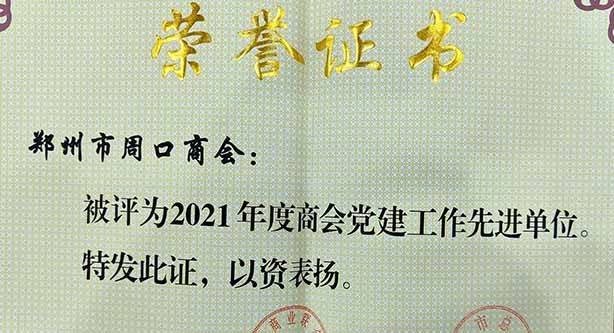 荣誉证书
郑州市周口商会：
被评为2021年度商会党建工作先进单位。
特发此证，以资表扬。
商业联
市总